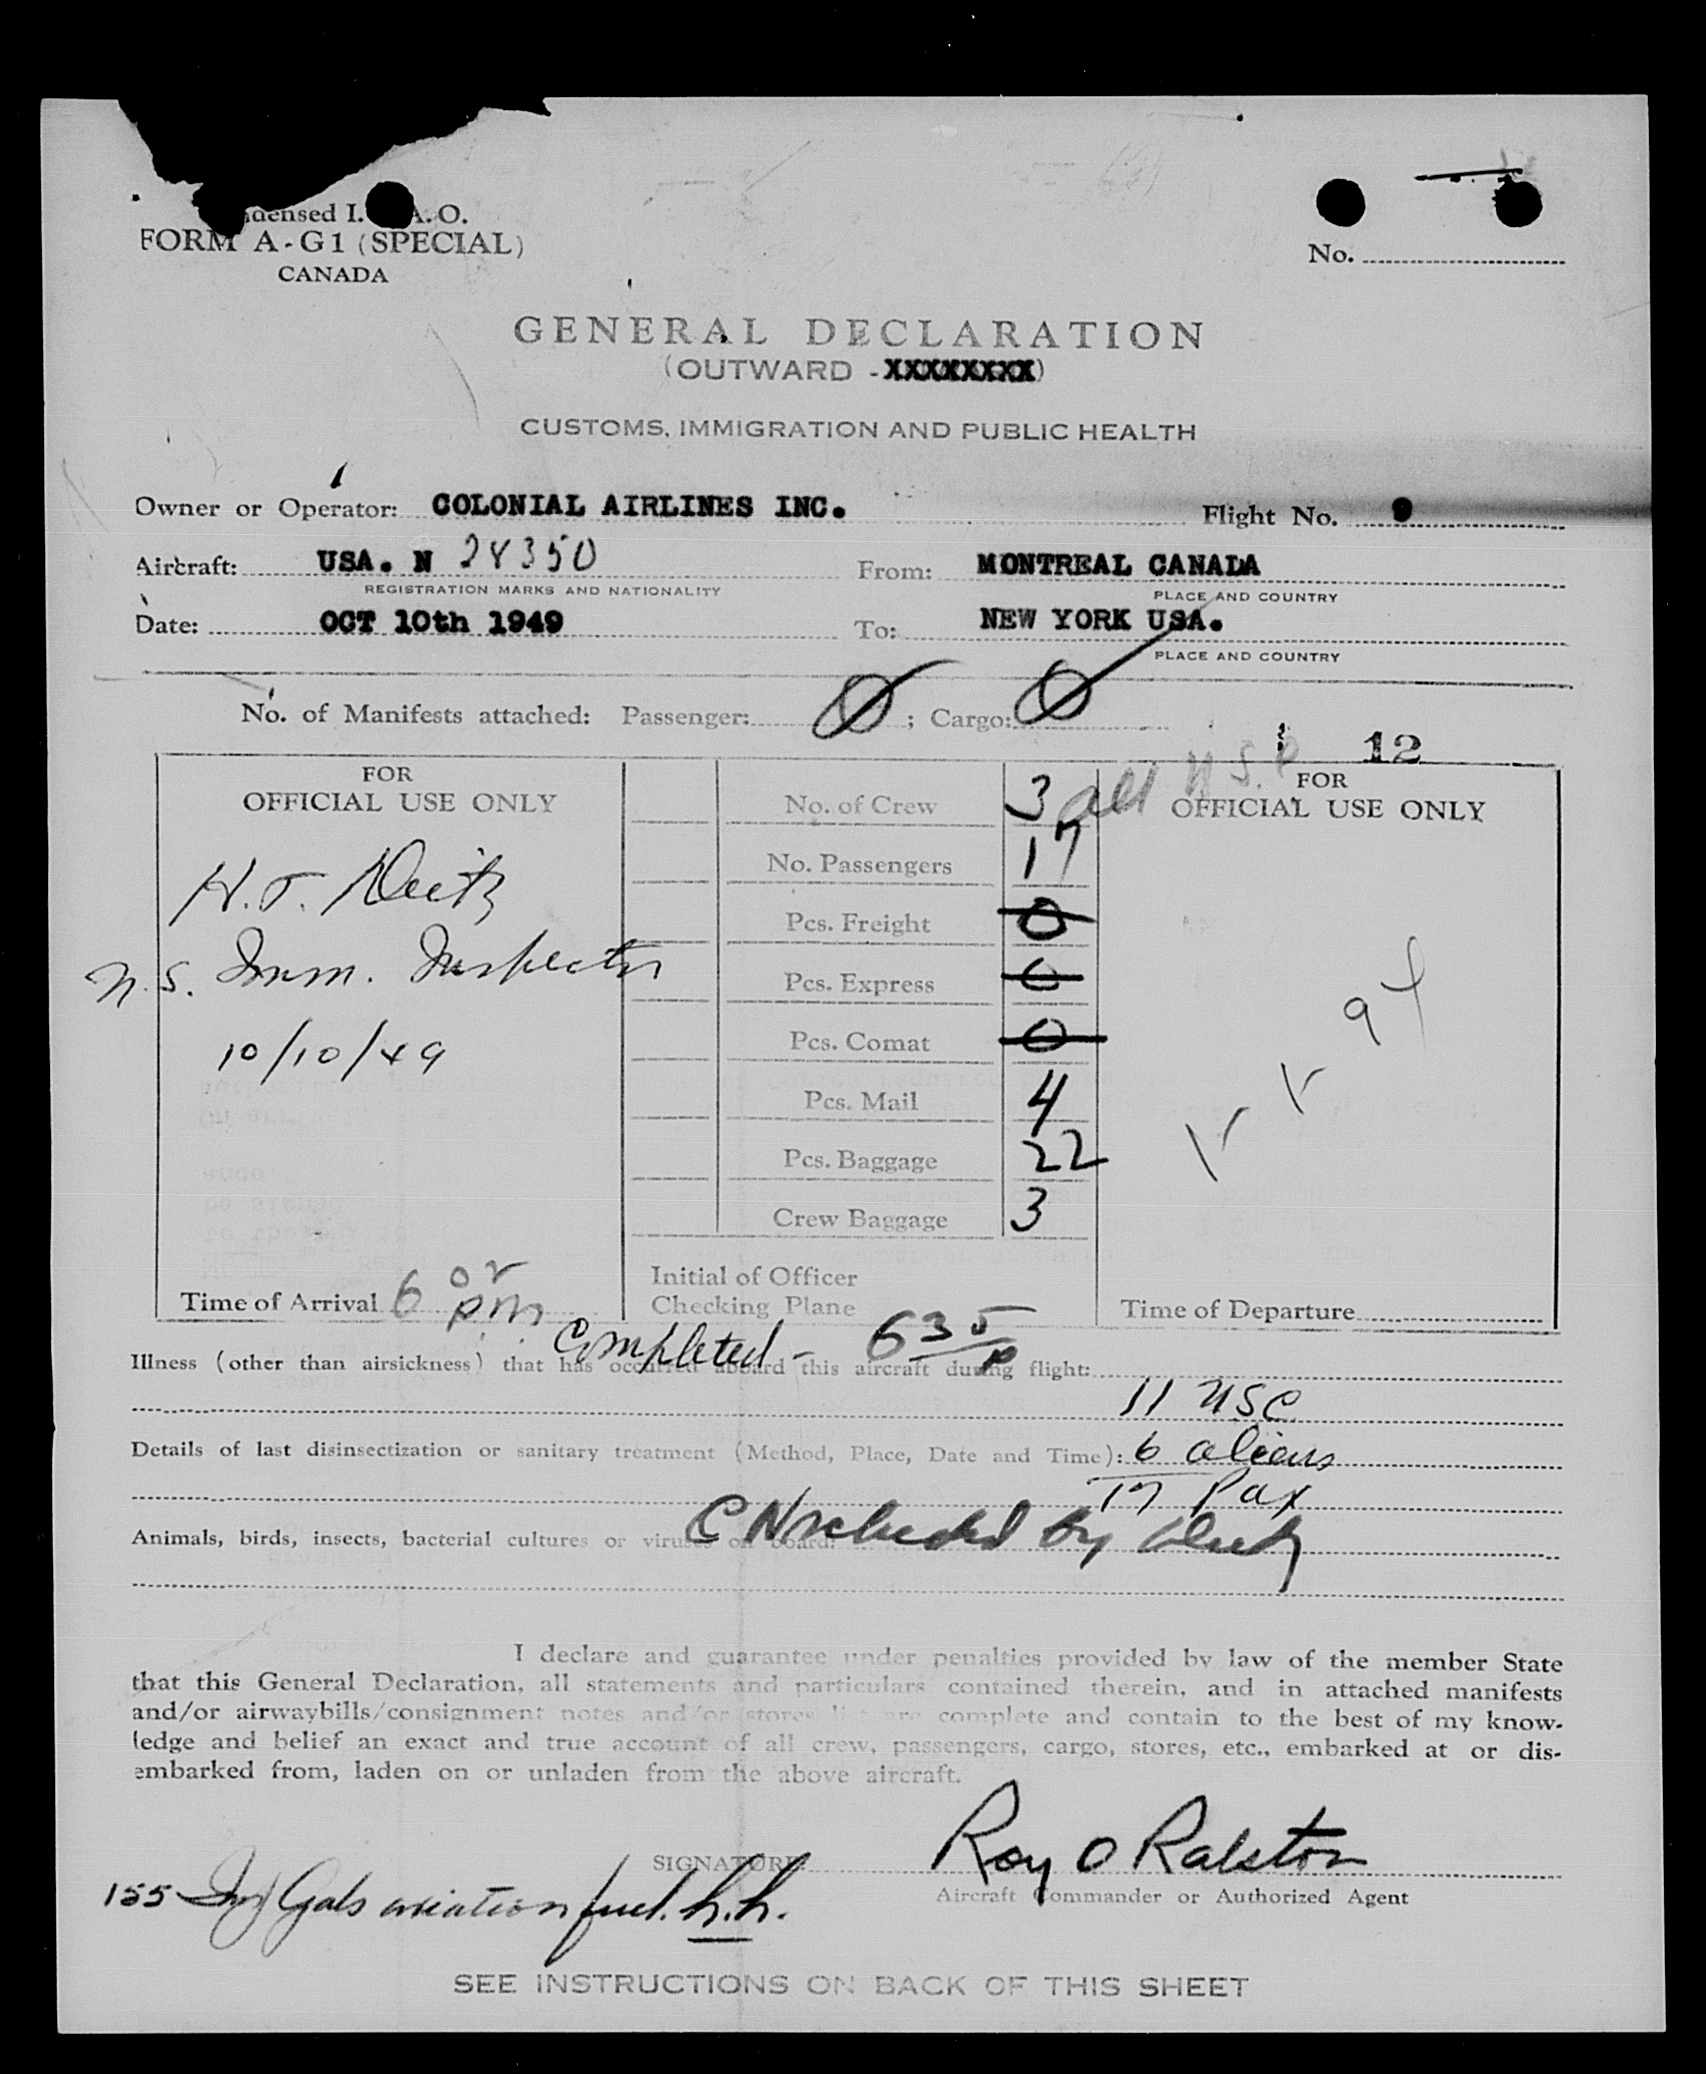 densed I. A.O.
FORM A-G1 (SPECIAL)
CANADA
No.
GENERAL DECLARATION
(OUTWARD - XXXXXXXX)
CUSTOMS, IMMIGRATION AND PUBLIC HEALTH
Owner or Operator: COLONIAL AIRLINES INC. Flight No. 9
Aircraft: USA. N 28350 From: MONTREAL CANADA
REGISTRATION MARKS AND NATIONALITY PLACE AND COUNTRY
Date: OCT 10th 1949 To: NEW YORK USA.
PLACE AND COUNTRY
No. of Manifests attached: Passenger: 0 ; Cargo: 0
12
FOR
OFFICIAL USE ONLY
H.J. Deitz
U.S. Imm. Inspector
10/10/49
Time of Arrival 6 02 pm
No. of Crew 3 all
No. Passengers 17
Pcs. Freight 0
Pcs. Express 0
Pcs. Comat 0
Pcs. Mail 4
Pcs. Baggage 22
Crew Baggage 3
Initial of Officer
Checking Plane
FOR
OFFICIAL USE ONLY
Time of Departure
Completed - 6 35 p
Illness (other than airsickness) that has occurred aboard this aircraft during flight:
11 USC
Details of last disinsectization or sanitary treatment (Method, Place, Date and Time): 6 aliens
17 Pax
Animals, birds, insects, bacterial cultures or viruses on board: by
I declare and guarantee under penalties provided by law of the member State
that this General Declaration, all statements and particulars contained therein, and in attached manifests
and/or airwaybills/consignment notes and/or stores list are complete and contain to the best of my know-
ledge and belief an exact and true account of all crew, passengers, cargo, stores, etc., embarked at or dis-
embarked from, laden on or unladen from the above aircraft.
SIGNATURE: Roy O Ralston
Aircraft Commander or Authorized Agent
155 Imp Gals aviation fuel. h.h.
SEE INSTRUCTIONS ON BACK OF THIS SHEET